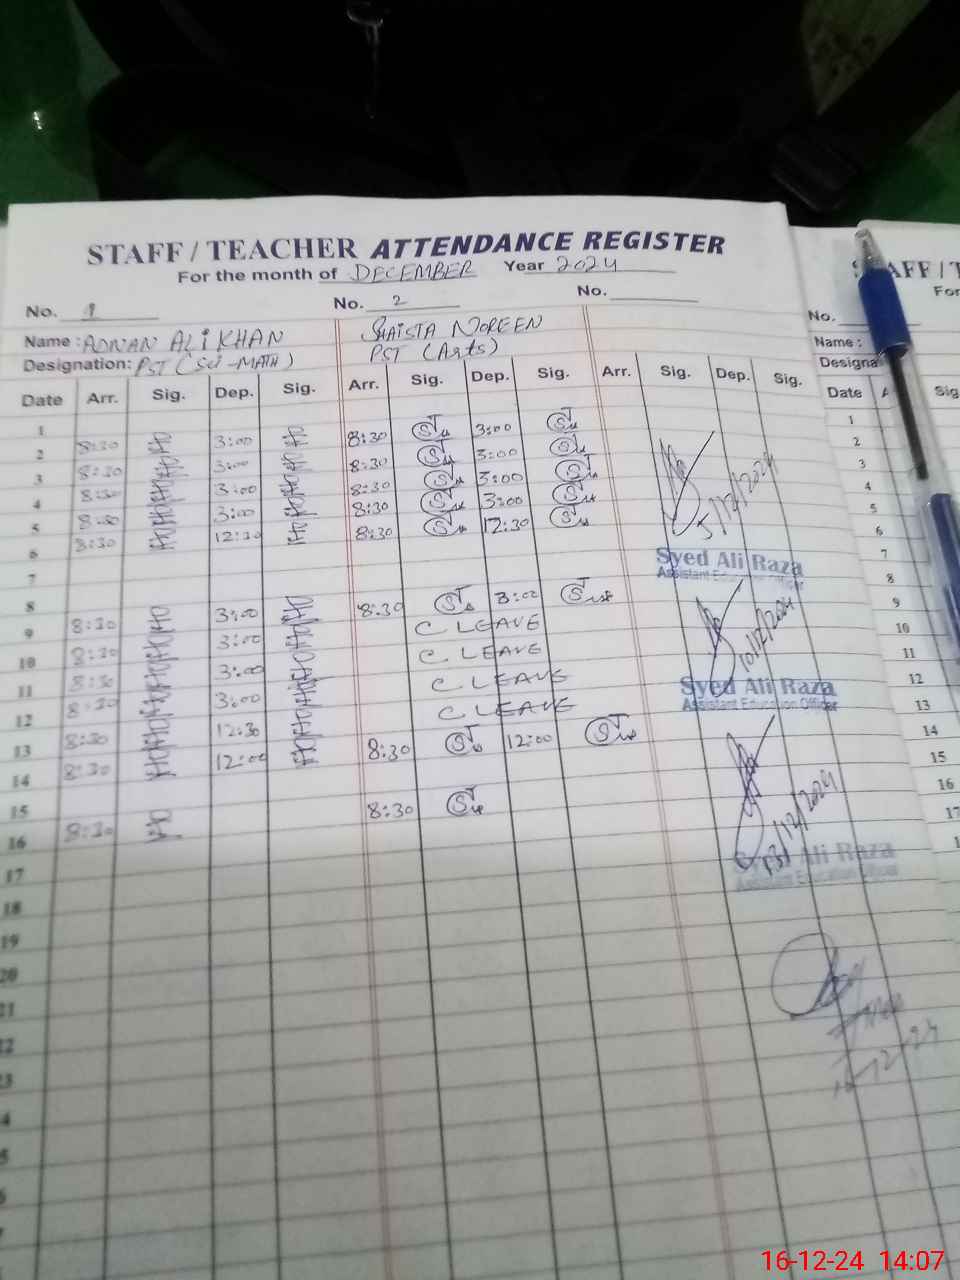 STAFF / TEACHER ATTENDANCE REGISTER
For the month of DECEMBER Year 2024
No. 1 No. 2 No.
Name : ADNAN ALI KHAN SHAISTA NOREEN
Designation: PST (Sci-MATH) PST (Arts)
Date Arr. Sig. Dep. Sig. Arr. Sig. Dep. Sig. Arr. Sig. Dep. Sig.
1
2 8:30 3:00 8:30 3:00
3 8:30 3:00 8:30 3:00
4 8:30 3:00 8:30 3:00
5 8:30 3:00 8:30 3:00 5/12/2024
6 8:30 12:30 8:30 12:30
Syed Ali Raza
Assistant Education Officer
7
8
9 8:30 3:00 8:30 3:00
10 8:30 3:00 C. LEAVE 10/12/2024
11 8:30 3:00 C. LEAVE
12 8:30 3:00 C. LEAVE
Syed Ali Raza
Assistant Education Officer
13 8:30 12:30 C. LEAVE
14 8:30 12:00 8:30 12:00
15
16 8:30 8:30
13/12/2024
17
Syed Ali Raza
Assistant Education Officer
18
19
20
21
22
23
AFF / T
For
No.
Name :
Designa
Date A Sig
1
2
3
4
5
6
7
8
9
10
11
12
13
14
15
16
17
16-12-24 14:07